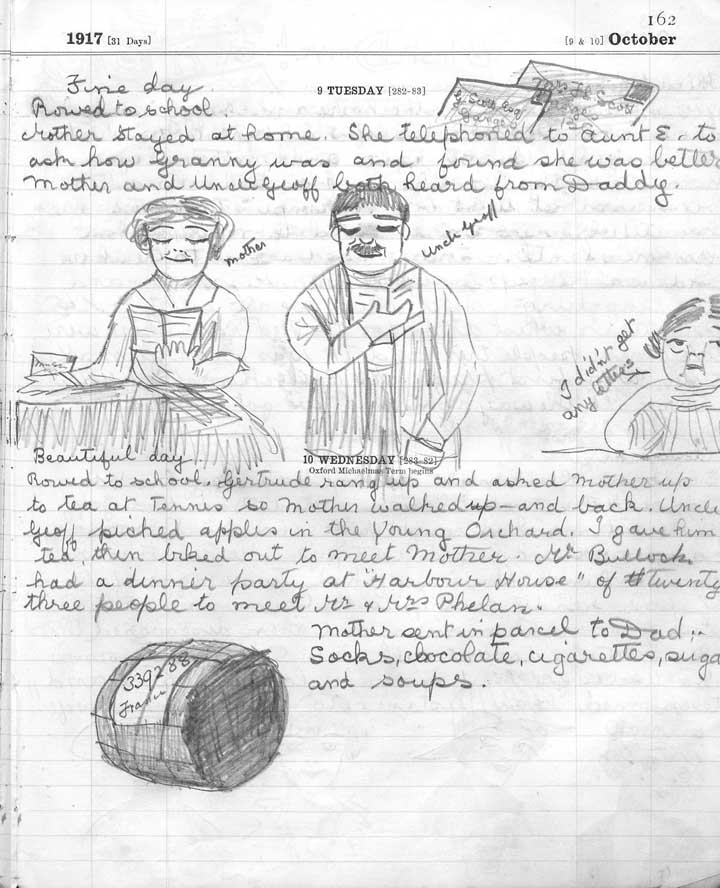 162
1917 [31 Days] [9 & 10] October
Fine day. 9 TUESDAY [282-83]
G. Scott Esq Mrs F. G. Scott
Ganges Ganges
Rowed to school.
Mother stayed at home. She telephoned to Aunt E. to
ask how Granny was and found she was better
Mother and Uncle Geoff both heard from Daddy.
Mother
Uncle Geoff
I didn't get
any letters
Beautiful day. 10 WEDNESDAY [283-82]
Oxford Michaelmas Term begins
Rowed to school. Gertrude rang up and asked Mother up
to tea at Tennis so Mother walked up - and back. Uncle
Geoff picked apples in the Young Orchard. I gave him
tea, then biked out to meet Mother. Mr Bullock
had a dinner party at "Harbour House" of twenty
three people to meet Mr & Mrs Phelan.
Mother sent in parcel to Dad:-
Socks, chocolate, cigarettes, suga
and soups.
339288
France